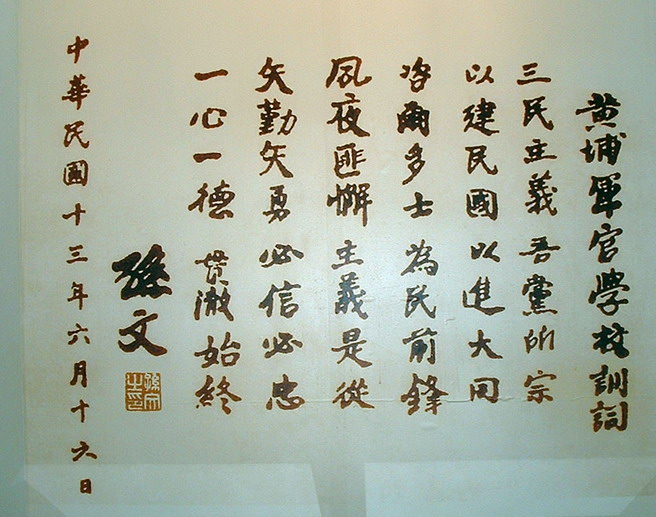 黃埔軍官學校訓詞
三民主義吾黨所宗
以建民國以進大同
咨爾多士為民前鋒
夙夜匪懈主義是從
矢勤矢勇必信必忠
一心一德貫徹始終
孫文
孫文之印
中華民國十三年六月十六日